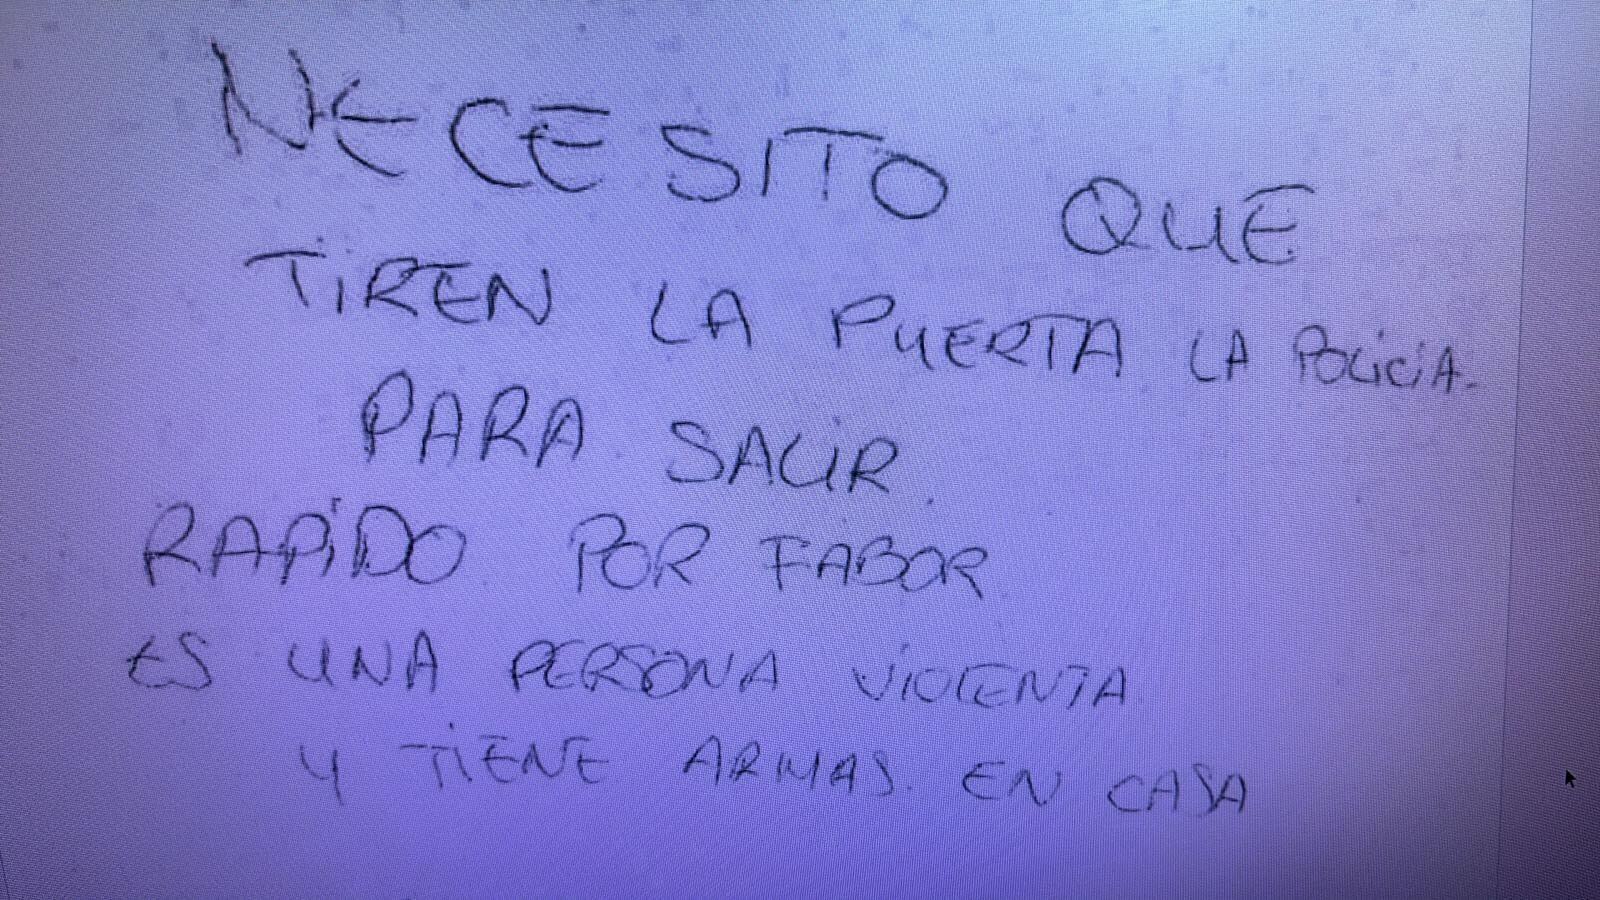 NECESITO QUE
TIREN LA PUERTA LA POLICIA.
PARA SALIR
RAPIDO POR FABOR
ES UNA PERSONA VIOLENTA
Y TIENE ARMAS EN CASA